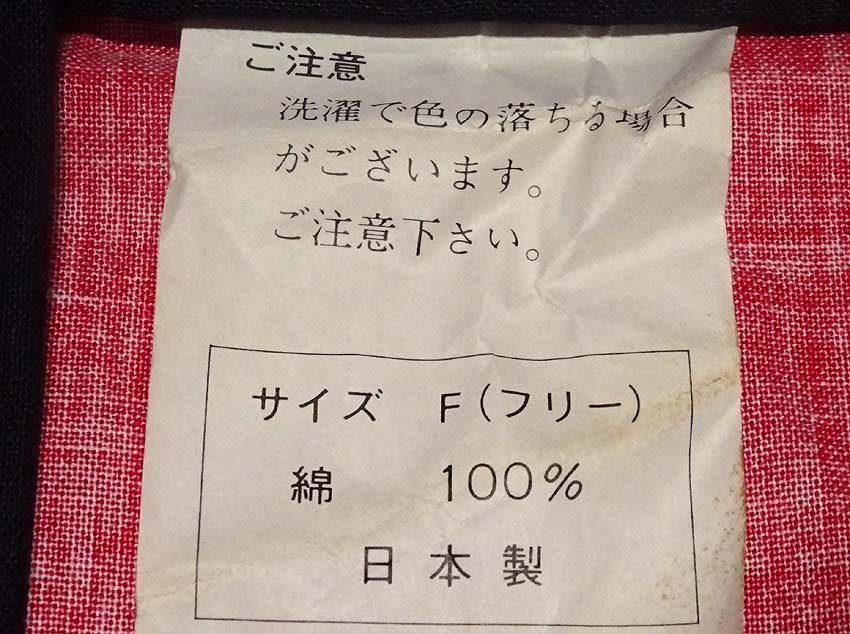 ご注意
洗濯で色の落ちる場合
がございます。
ご注意下さい。
サイズ F(フリー)
綿 100%
日本製